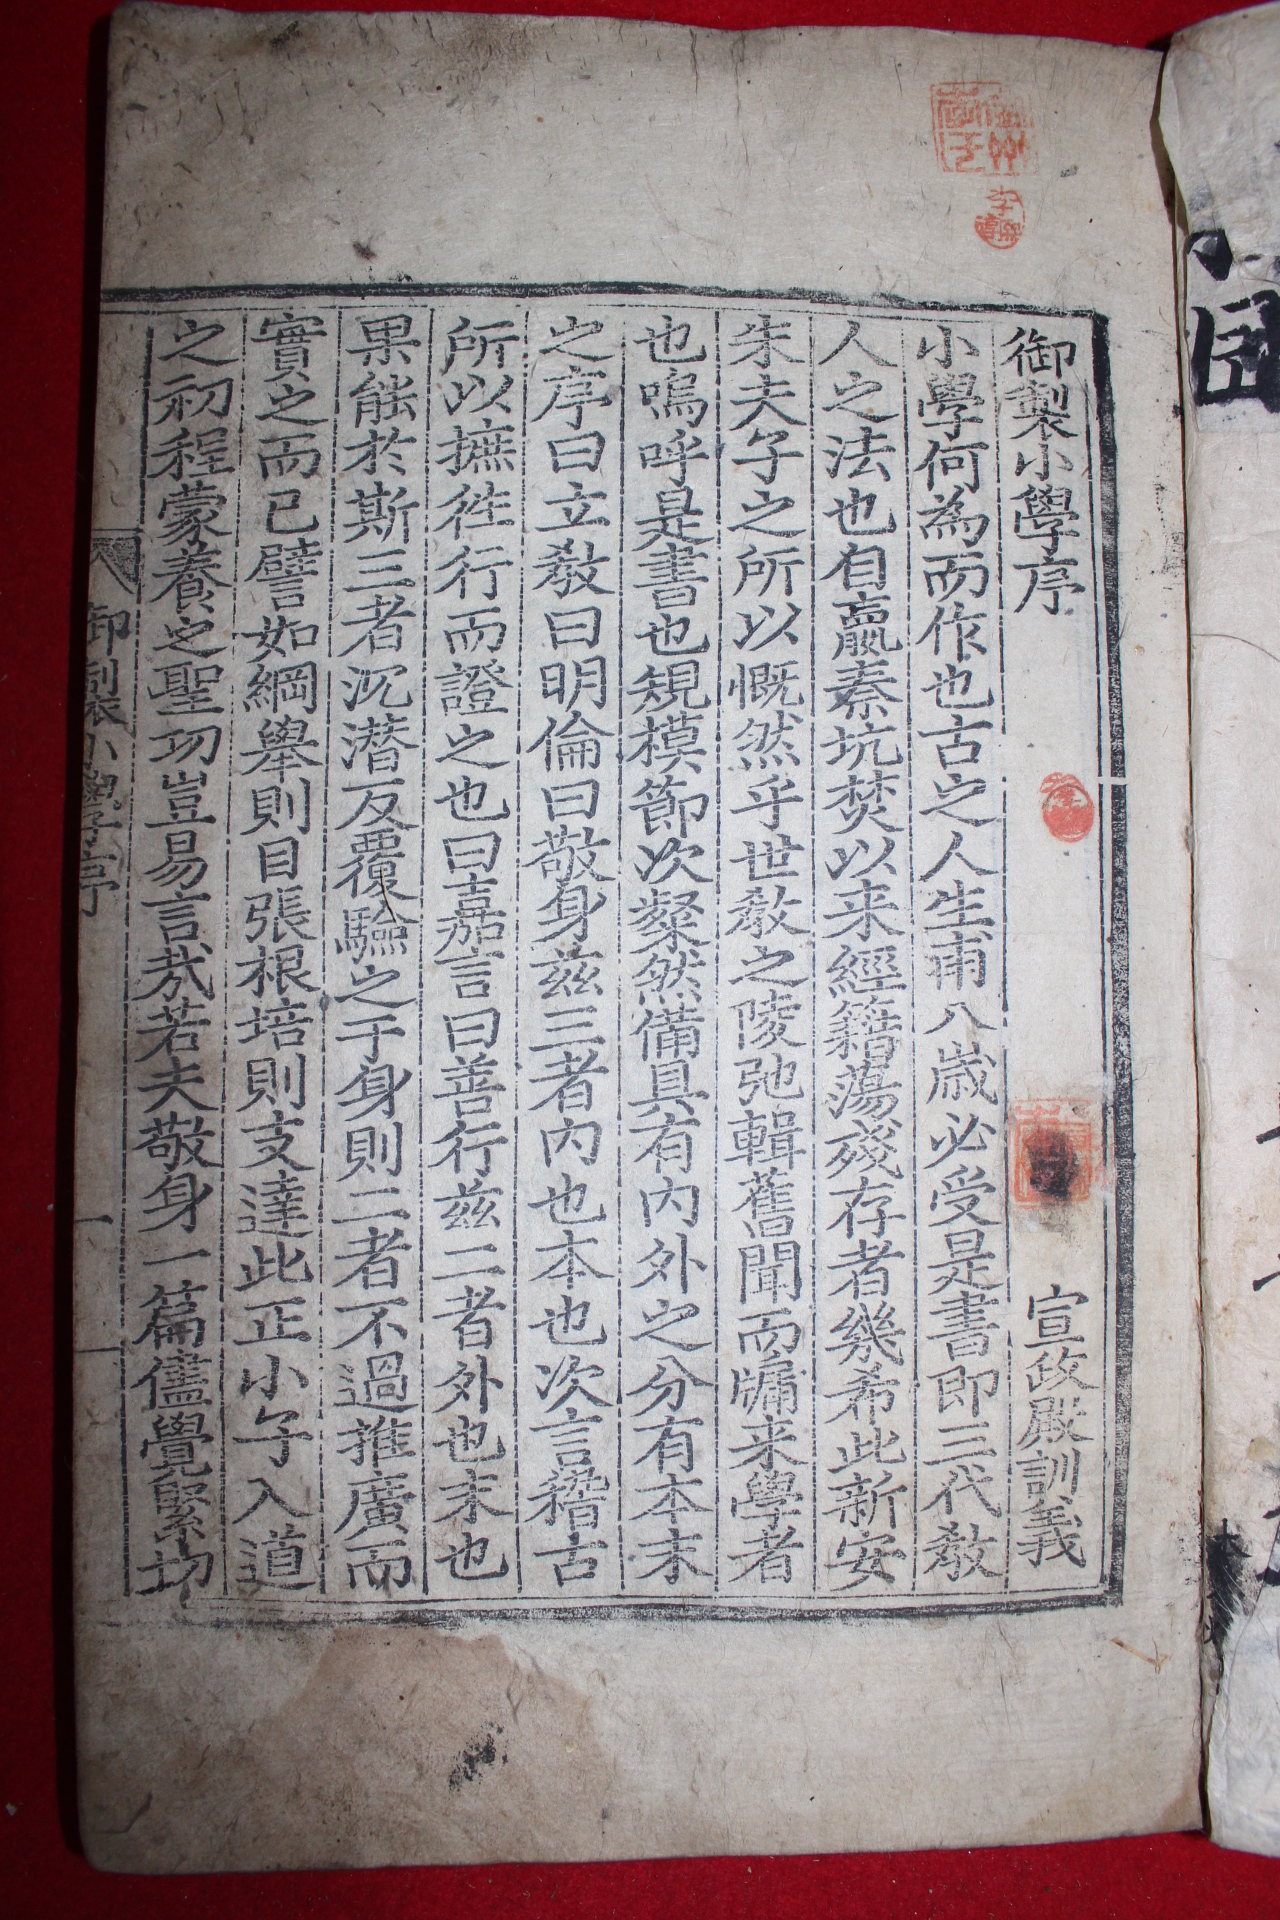 御製小學序
宣政殿訓義
小學何為而作也古之人生甫八歲必受是書即三代敎
人之法也自嬴秦坑焚以来經籍蕩殘存者幾希此新安
朱夫子之所以慨然乎世敎之陵弛輯舊聞而牖来學者
也嗚呼是書也規模節次粲然備具有內外之分有本末
之序曰立敎曰明倫曰敬身兹三者內也本也次言稽古
所以摭徃行而證之也曰嘉言曰善行兹二者外也末也
果能於斯三者沉潜反覆驗之于身則二者不過推廣而
實之而已譬如綱舉則目張根培則支達此正小子入道
之初程蒙養之聖功豈易言㢤若夫敬身一篇儘覺緊切
御製小學序
一